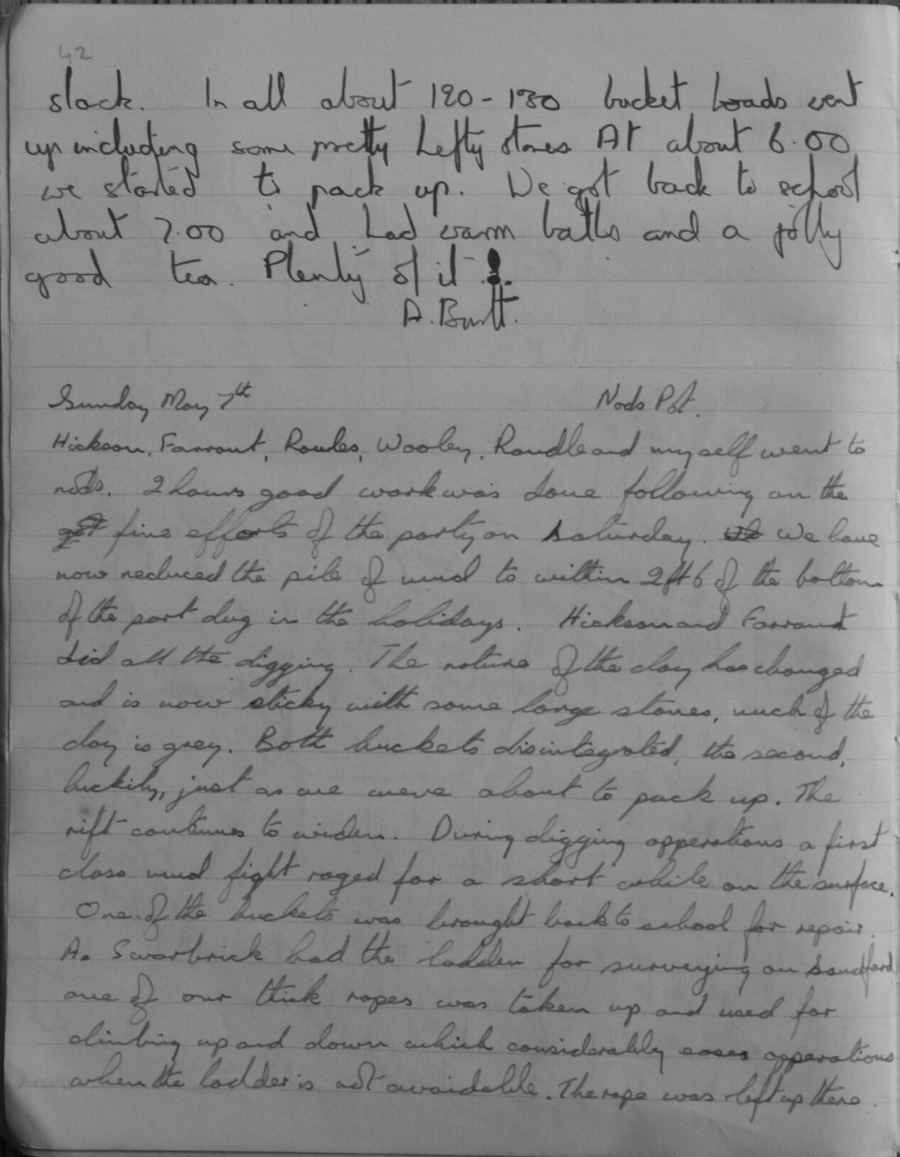 42
slack. In all about 120-130 bucket loads went
up including some pretty hefty stones At about 6.00
we started to pack up. We got back to school
about 7.00 and had warm baths and a jolly
good tea. Plenty of it !.
A. Burtt.
Sunday May 7th Nods Pot.
Hickson, Farrant, Rowles, Wooley, Randle and myself went to
nods. 2 hours good work was done following on the
fine efforts of the party on Saturday. We have
now reduced the pile of mud to within 2ft 6 of the bottom
of the part dug in the holidays. Hickson and Farrant
did all the digging. The nature of the clay has changed
and is now sticky with some large stones, much of the
clay is grey. Both buckets disintegrated, the second,
luckily, just as we were about to pack up. The
rift continues to widen. During digging opperations a first
class mud fight raged for a short while on the surface.
One of the buckets was brought back to school for repair.
As Swarbrick had the ladder for surveying on Sandford
one of our thick ropes was taken up and used for
climbing up and down which considerably eases opperations
when the ladder is not avaidable. The rope was left up there.